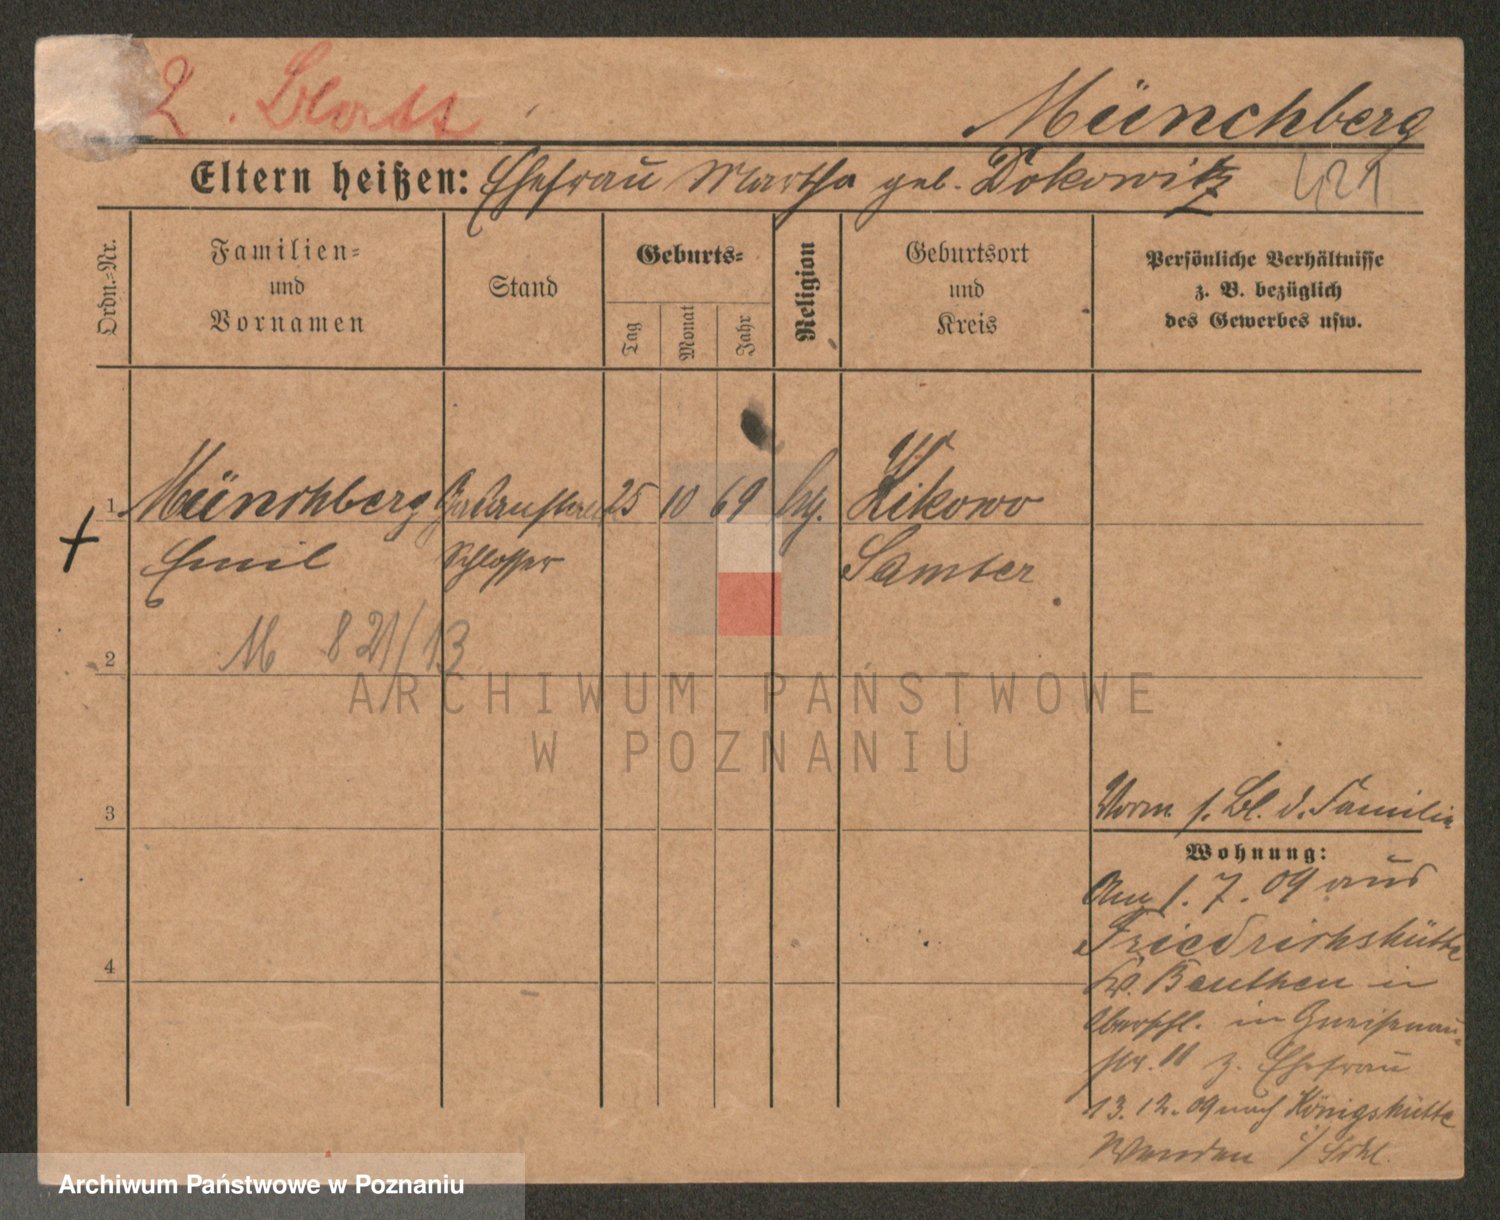 2. Blatt
Münchberg
Eltern heißen: Ehefrau Martha geb. Dokowitz 421
Ordn.-Nr.
Familien-
und
Vornamen
Stand
Geburts-
Tag
Monat
Jahr
Religion
Geburtsort
und
Kreis
Persönliche Verhältnisse
z. B. bezüglich
des Gewerbes usw.
1 Münchberg 25 10 69 Kikowo
Emil Schlosser Samter
M 821/13
2
ARCHIWUM PAŃSTWOWE
W POZNANIU
3
Vorm. s. Bl. d. Familie
Wohnung:
Am 1.7.09 aus
Friedrichshütte
Kr. Beuthen in
Oberschl. in Gneisenau-
str. 11 z. Ehefrau
13.12.09 nach Königshütte
4
Archiwum Państwowe w Poznaniu